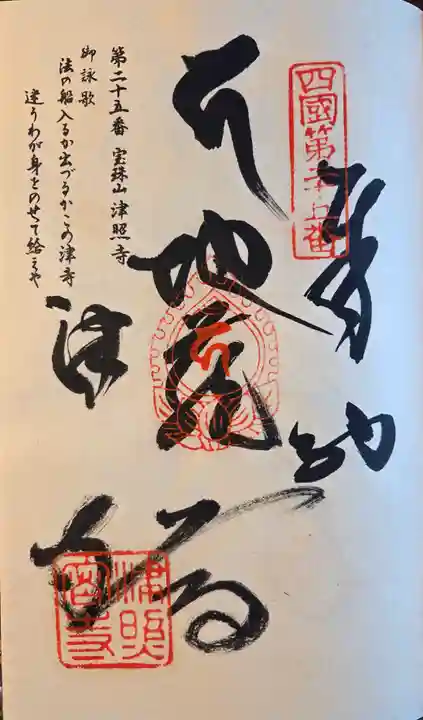 四國第二十五番
奉納
地蔵
津
寺
津照寺
第二十五番 宝珠山 津照寺
御詠歌
法の船入るか出づるかこの津寺
迷うわが身をのせて給えや